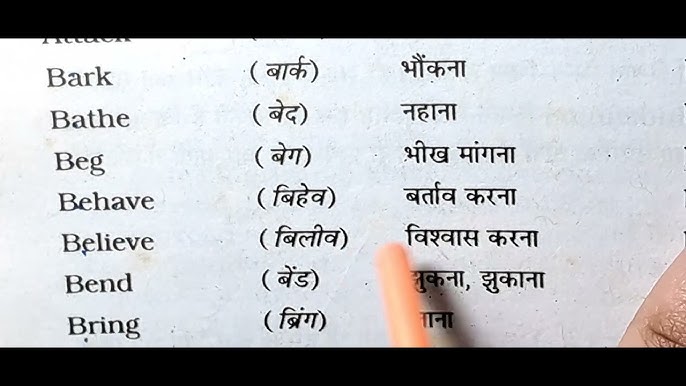 Bark (बार्क) भौंकना
Bathe (बेद) नहाना
Beg (बेग) भीख मांगना
Behave (बिहेव) बर्ताव करना
Believe (बिलीव) विश्वास करना
Bend (बेंड) झुकना, झुकाना
Bring (ब्रिंग)